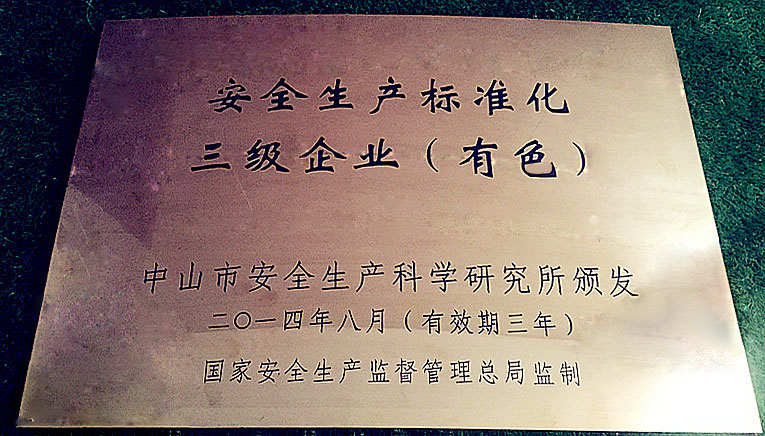 安全生产标准化
三级企业（有色）
中山市安全生产科学研究所颁发
二〇一四年八月（有效期三年）
国家安全生产监督管理总局监制